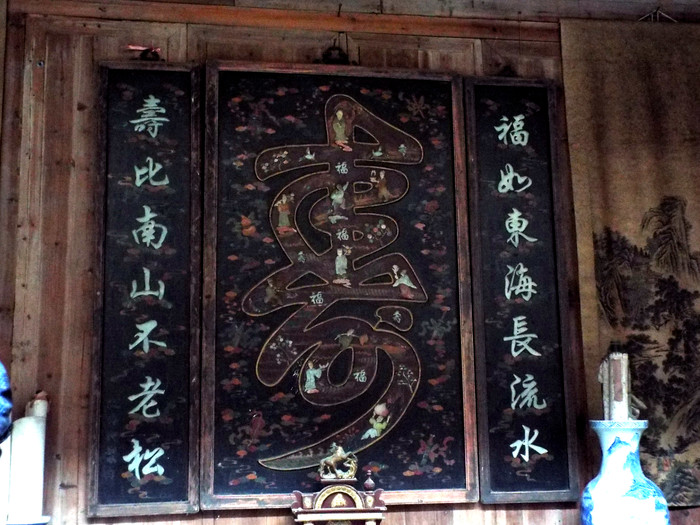 福如東海長流水
壽
福
福
壽
福
壽
福
壽比南山不老松